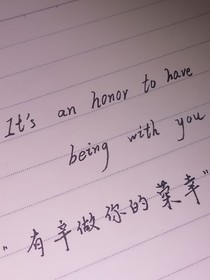 It's an honor to have
being with you
"有幸做你的荣幸"